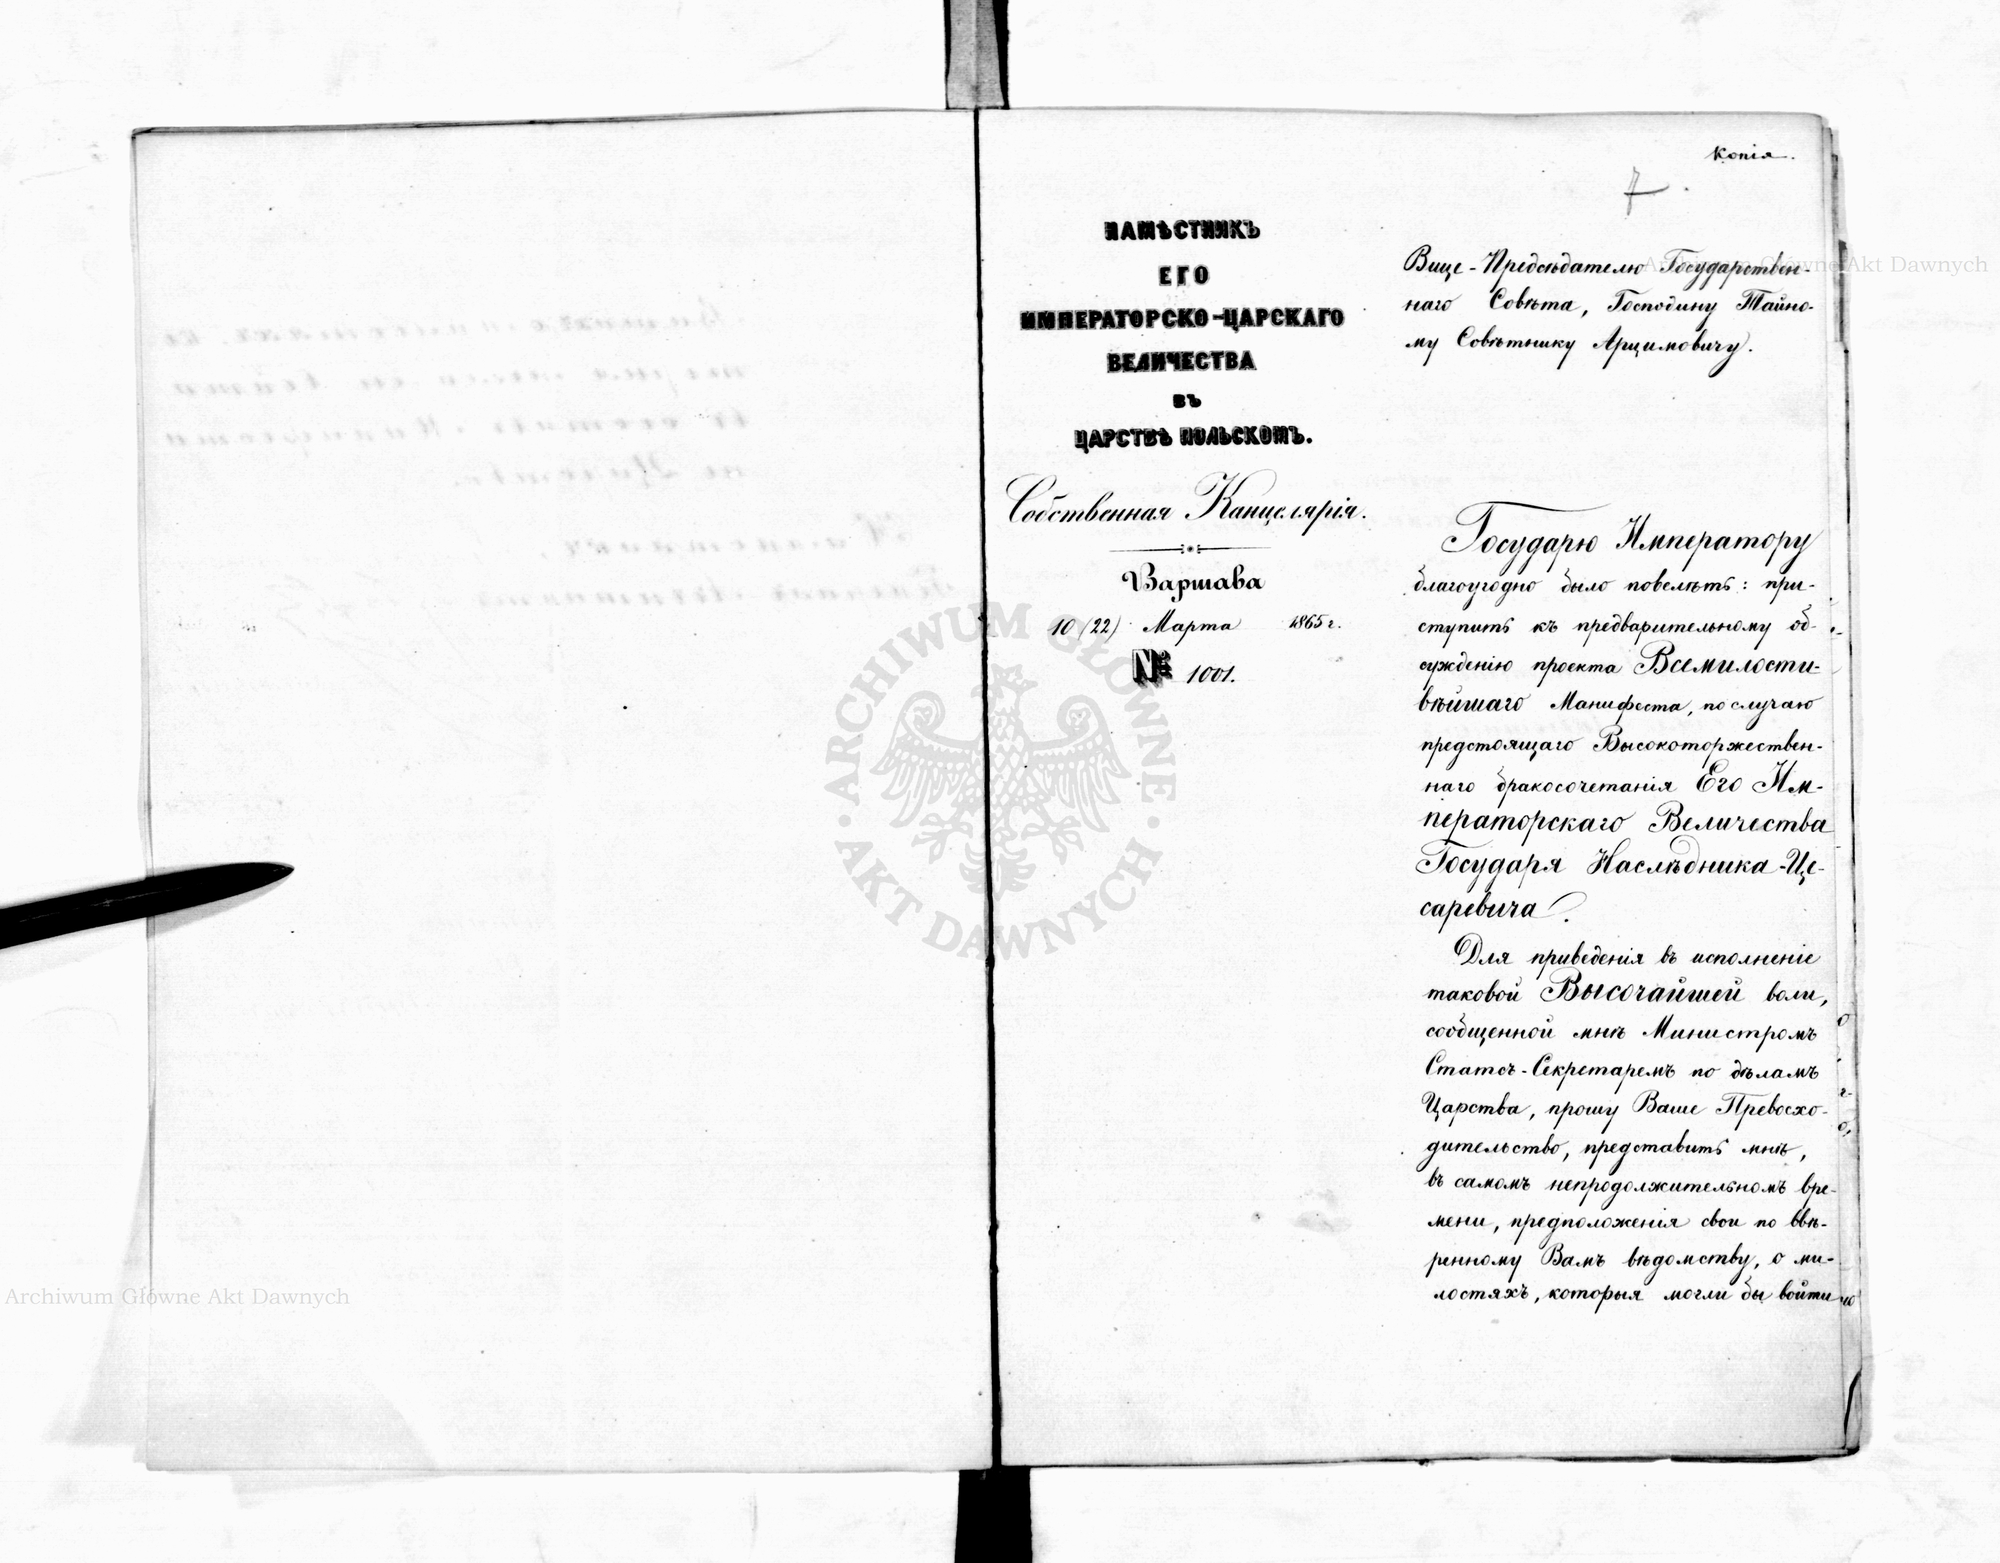 Копія.
7.
НАМѢСТНИКЪ
ЕГО
ИМПЕРАТОРСКО-ЦАРСКАГО
ВЕЛИЧЕСТВА
ВЪ
ЦАРСТВѢ ПОЛЬСКОМЪ.
Собственная Канцелярія.
Варшава
10 (22) Марта 1865 г.
№ 1001.
Вице-Предсѣдателю Государствен-
наго Совѣта, Господину Тайно-
му Совѣтнику Арцимовичу.
Государю Императору
благоугодно было повелѣть: при-
ступить къ предварительному об-
сужденію проекта Всемилости-
вѣйшаго Манифеста, по случаю
предстоящаго Высокоторжествен-
наго бракосочетанія Его Им-
ператорскаго Величества
Государя Наслѣдника-Це-
саревича.
Для приведенія въ исполненіе
таковой Высочайшей воли,
сообщенной мнѣ Министромъ
Статсъ-Секретаремъ по дѣламъ
Царства, прошу Ваше Превосхо-
дительство, представить мнѣ,
въ самомъ непродолжительномъ вре-
мени, предположенія свои по ввѣ-
ренному Вамъ вѣдомству, о ми-
лостяхъ, которыя могли бы войти
ARCHIWUM GŁÓWNE · AKT DAWNYCH ·
Archiwum Główne Akt Dawnych
Archiwum Główne Akt Dawnych